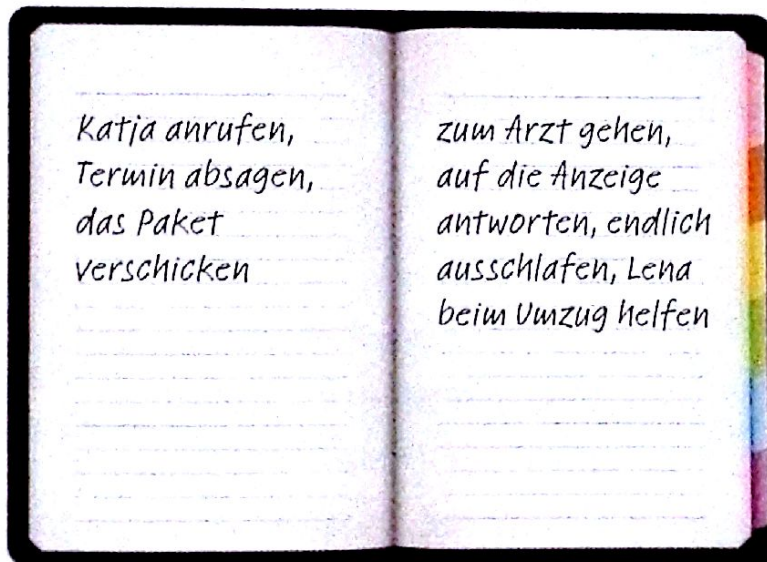 Katja anrufen,
Termin absagen,
das Paket
verschicken
zum Arzt gehen,
auf die Anzeige
antworten, endlich
ausschlafen, Lena
beim Umzug helfen